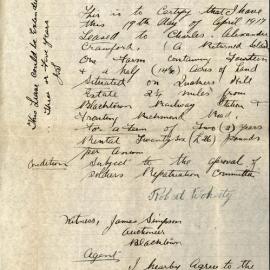 This is to Certify that I have
this 19th Day of April 1917
Leased to Charles Alexander
Crawford, (A Returned Soldier)
One Farm Containing Fourteen
& a half (14½) Acres of land
Situated on Quakers Hill
Estate 2½ miles from
Blacktown Railway Station &
Fronting Richmond Road.
For a term of Two (2) years
Rental Twenty six (£26) Pounds
per annum
Condition Subject to the approval of
Soldiers Repatriation Committee
Robert
Witness, James Simpson
Auctioneer
Blacktown
Agent
I hearby Agree to the
This Lease could be Extended
Three or Five Years